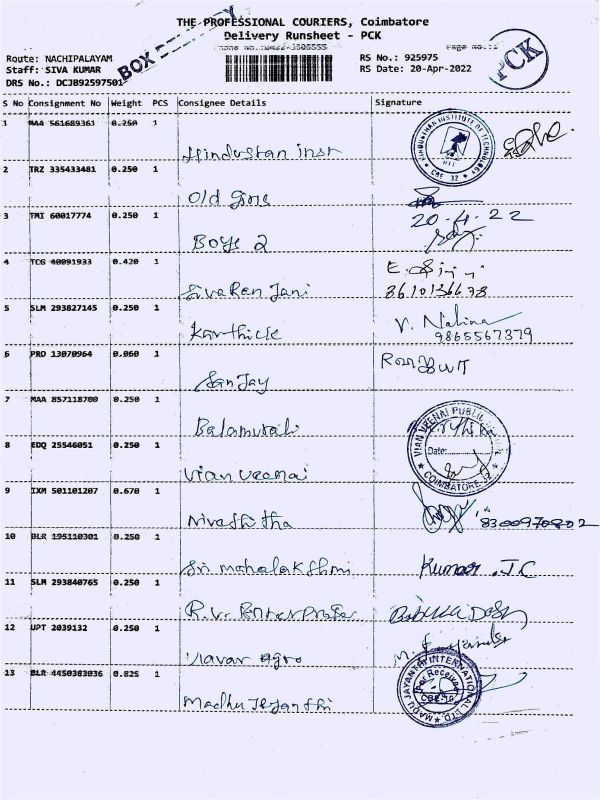 THE PROFESSIONAL COURIERS, Coimbatore
Delivery Runsheet - PCK
BOX
PCK
Route: NACHIPALAYAM
Staff: SIVA KUMAR
DRS No.: DCJB92597501
RS No.: 925975
RS Date: 20-Apr-2022
S No Consignment No Weight PCS Consignee Details Signature
1 MAA 561689361 0.250 1
Hindustan inst
HINDUSTHAN INSTITUTE OF TECHNOLOGY
HIT
CBE 32
2 TRZ 335433481 0.250 1
Old
3 TMI 60017774 0.250 1 20-4-22
Boys 2
4 TCG 40091933 0.420 1
Siva Ran Jani 8610136678
5 SLM 293827145 0.250 1 V. Nalina
Karthick 9865567379
6 PRO 13070964 0.060 1
San Jay
7 MAA 857118700 0.250 1
Balamurali
VIAN VEENAI PUBLIC
Date:
COIMBATORE-32
8 EDQ 25546051 0.250 1
Vian veenai
9 IXM 501101207 0.670 1
Nivashitha 8300970802
10 BLR 195110301 0.250 1
Sri mahalakshmi Kumar .J.C
11 SLM 293840765 0.250 1
R.V. Enterprises
12 UPT 2039132 0.250 1
Agro
13 BLR 4450383036 0.825 1
Madhu Jeyanthi
MADU JAYANTHI INTERNATIONAL LTD.